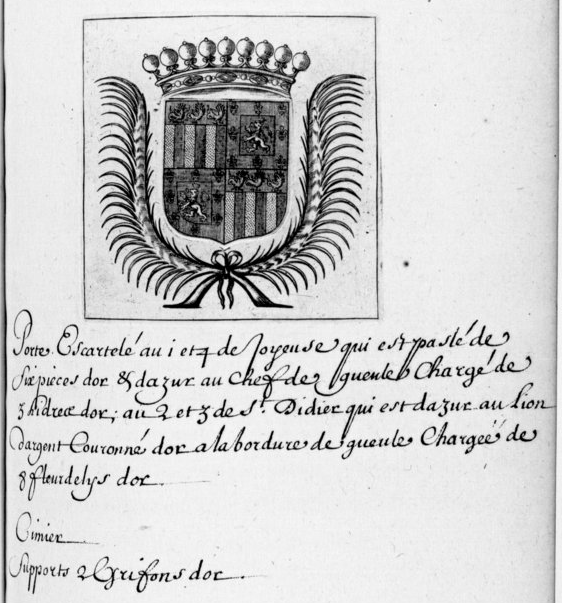 Porte Escartelé au 1 et 4 de Joyeuse qui est paslé de
six pieces dor & dazur au Chef de gueule Chargé de
3 hidres dor; au 2 et 3 de St. Didier qui est dazur au Lion
dargent Couronné dor a la bordure de gueule Chargéé de
8 fleurdelys dor
Cimier
Supports 2 Grifons dor.